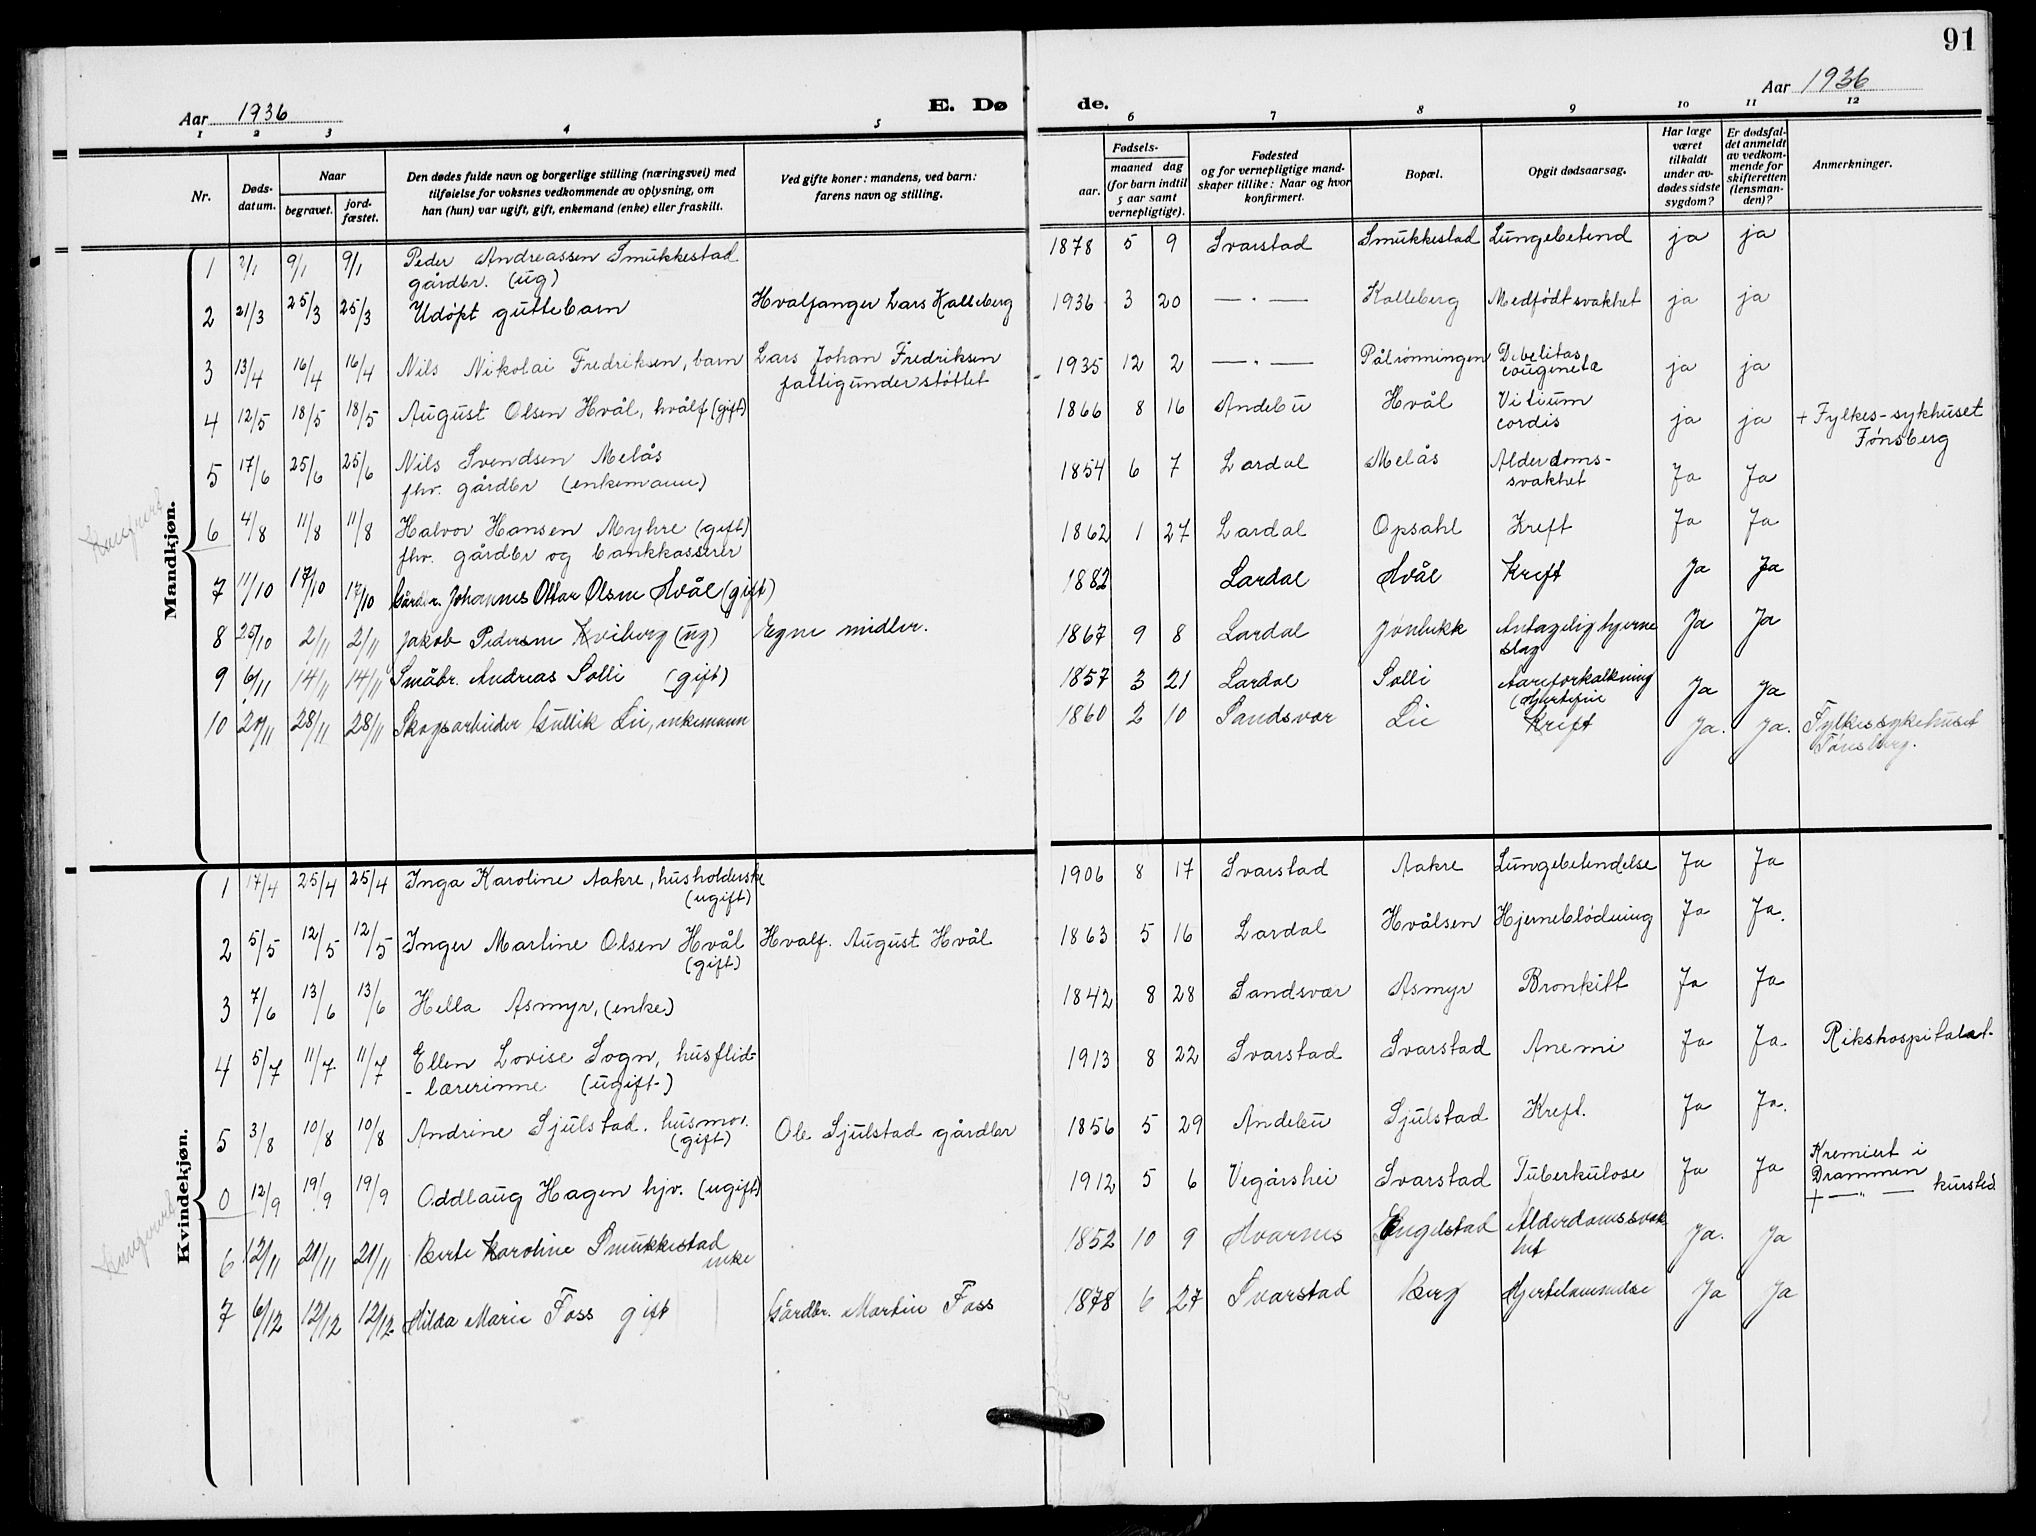 91
Aar 1936
E. Dø
de.
Aar 1936
1 2 3 4 5
6 7 8 9 10 11 12
Nr.
Døds-
datum.
Naar
begravet.
jord-
fæstet.
Den dødes fulde navn og borgerlige stilling (næringsvei) med
tilføielse for voksnes vedkommende av oplysning, om
han (hun) var ugift, gift, enkemand (enke) eller fraskilt.
Ved gifte koner: mandens, ved barn:
farens navn og stilling.
Fødsels-
aar.
maaned dag
(for barn indtil
5 aar samt
vernepligtige).
Fødested
og for vernepligtige mand-
skaper tillike: Naar og hvor
konfirmert.
Bopæl.
Opgit dødsaarsag.
Har læge
været
tilkaldt
under av-
dødes sidste
sygdom?
Er dødsfal-
det anmeldt
av vedkom-
mende for
skifteretten
(lensman-
den)?
Anmerkninger.
Mandkjøn.
1 2/1 9/1 9/1 Peder Andreassen Smukkestad 1878 5 9 Svarstad Smukkestad Lungebetend ja ja
gårdbr. (ug)
2 21/3 25/3 25/3 Udøpt guttebarn Hvalfanger Lars Kalleberg 1936 3 20 — " — Kalleberg Medfödt svakhet ja ja
3 13/4 16/4 16/4 Nils Nikolai Fredriksen, barn Lars Johan Fredriksen 1935 12 2 — " — Pålrönningen Debelitas ja ja
fattigunderstöttet cougeneta
4 12/5 18/5 18/5 August Olsen Hvål, hvålf (gift) 1866 8 16 Andebu Hvål Vitium ja ja + Fylkes-sykhuset
cordis Tönsberg
5 17/6 25/6 25/6 Nils Svendsen Melås 1854 6 7 Lardal Melås Alderdoms- Ja Ja
fhv. gårdbr (enkemann) svakhet
6 4/8 11/8 11/8 Halvor Hansen Myhre (gift) 1862 1 27 Lardal Opsahl Kreft Ja Ja
fhv. gårdbr og bankkasserer
7 11/10 17/10 17/10 Gårdbr. Johannes Ottar Olsen Hvål (gift) 1882 Lardal Hvål Kreft Ja Ja
8 25/10 2/11 2/11 Jakob Pedersen Kviberg (ug) Egne midler. 1867 9 8 Lardal Jönbekk Antagelig hjerne Ja Ja
slag
9 6/11 14/11 14/11 Småbr. Andreas Solli (gift) 1857 3 21 Lardal Solli Aareforkalkning Ja Ja
10 20/11 28/11 28/11 Skogsarbeider Gullik Lie, enkemann 1860 2 10 Sandsvær Lie Kreft Ja. Ja. Fylkessykehuset
Tönsberg.
Kvindekjøn.
1 17/4 25/4 25/4 Inga Karoline Aakre, husholderske 1906 8 17 Svarstad Aakre Lungebetendelse Ja Ja
(ugift)
2 5/5 12/5 12/5 Inger Martine Olsen Hvål Hvalf. August Hvål 1863 5 16 Lardal Hvålsen Hjerneblödning Ja Ja.
(gift)
3 7/6 13/6 13/6 Hella Asmyr, (enke) 1842 8 28 Sandsvær Asmyr Bronkitt Ja Ja
4 5/7 11/7 11/7 Ellen Lovise Sogn, husflid- 1913 8 22 Svarstad Svarstad Anemi Ja Ja. Rikshospitalet
-lærerinne (ugift)
5 3/8 10/8 10/8 Andrine Sjulstad. husmor. Ole Sjulstad gårdbr 1856 5 29 Andebu Sjulstad Kreft. Ja Ja.
(gift)
0 12/9 19/9 19/9 Oddlaug Hagen hjv. (ugift) 1912 5 6 Vegårshei Svarstad Tuberkulose Ja Ja Kremiert i
Drammen
+ — " — kursted
6 12/11 21/11 21/11 Berte Karoline Smukkestad 1852 10 9 Hvarnes Engelstad Alderdomssvak Ja. Ja
enke het
7 6/12 12/12 12/12 Hilda Marie Foss gift Gårdbr. Martin Foss 1878 6 27 Svarstad Berg Hjertelammelse Ja Ja